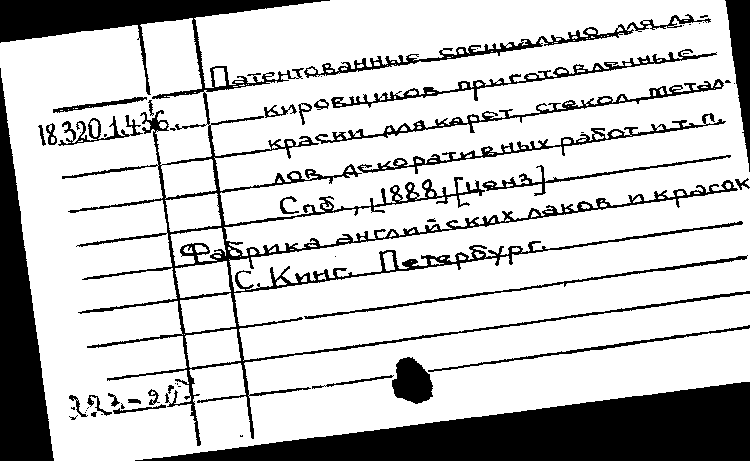 Патентованные специально для ла-
18.320.1.436. кировщиков приготовленные
краски для карет, стекол, метал-
лов, декоративных работ и т. п.
Спб., [1888] [ценз].
Фабрика английских лаков и красок
С. Кинг. Петербург.